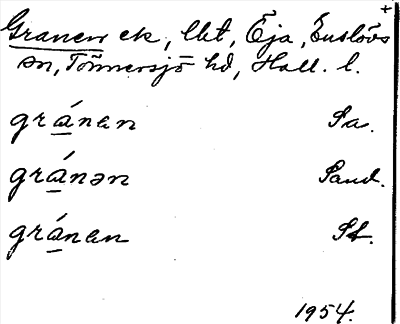 Granen ek, lht, Eja, Enslövs
sn, Tönnersjö hd, Hall. l.
gránan Sa.
gránən Sand.
gránan St.
1954.